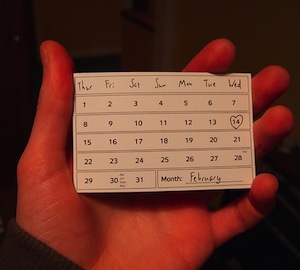 Thur Fri Sat Sun Mon Tue Wed
1 2 3 4 5 6 7
8 9 10 11 12 13 14
15 16 17 18 19 20 21
22 23 24 25 26 27 28
29 30 31 Month: February